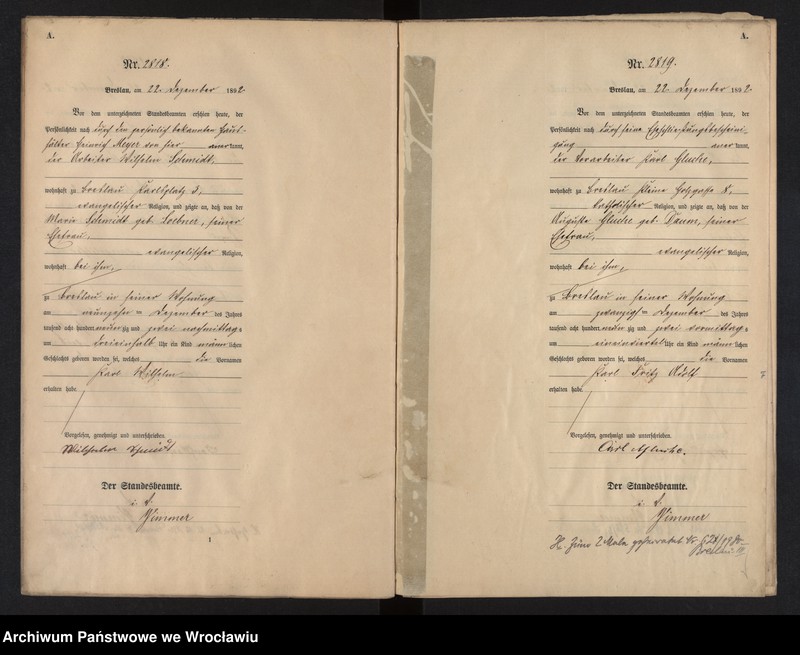 A.
Nr. 2818.
Breslau, am 22. Dezember 1892
Vor dem unterzeichneten Standesbeamten erschien heute, der
Persönlichkeit nach durch den persönlich bekannten Haus-
hälter Heinrich Meyer von hier, anerkannt,
der Arbeiter Wilhelm Schmidt,
wohnhaft zu Breslau Karlsplatz 3,
evangelischer Religion, und zeigte an, daß von der
Marie Schmidt geb. Loebner, seiner
Ehefrau,
evangelischer Religion,
wohnhaft bei ihm,
zu Breslau in seiner Wohnung
am neunzehn = Dezember des Jahres
tausend acht hundert neunzig und zwei nachmittag s
um dreieinhalb Uhr ein Kind männlichen
Geschlechts geboren worden sei, welches die Vornamen
Karl Wilhelm
erhalten habe.
Vorgelesen, genehmigt und unterschrieben.
Wilhelm Schmidt
Der Standesbeamte.
i. V.
Zimmer
1
A.
Nr. 2819.
Breslau, am 22. Dezember 1892
Vor dem unterzeichneten Standesbeamten erschien heute, der
Persönlichkeit nach durch seine Eheschließungsbescheini-
gung anerkannt,
der Vorarbeiter Karl Gluche,
wohnhaft zu Breslau kleine Holzgasse 8,
katholischer Religion, und zeigte an, daß von der
Auguste Gluche geb. Daum, seiner
Ehefrau,
evangelischer Religion,
wohnhaft bei ihm,
zu Breslau in seiner Wohnung
am zwanzig = Dezember des Jahres
tausend acht hundert neunzig und zwei vormittag s
um eineinviertel Uhr ein Kind männlichen
Geschlechts geboren worden sei, welches die Vornamen
Karl Fritz Adolf
erhalten habe.
Vorgelesen, genehmigt und unterschrieben.
Carl Gluche.
Der Standesbeamte.
i. V.
Zimmer
Zum 2 Male geheiratet Nr. 628/19
Breslau III
Archiwum Państwowe we Wrocławiu